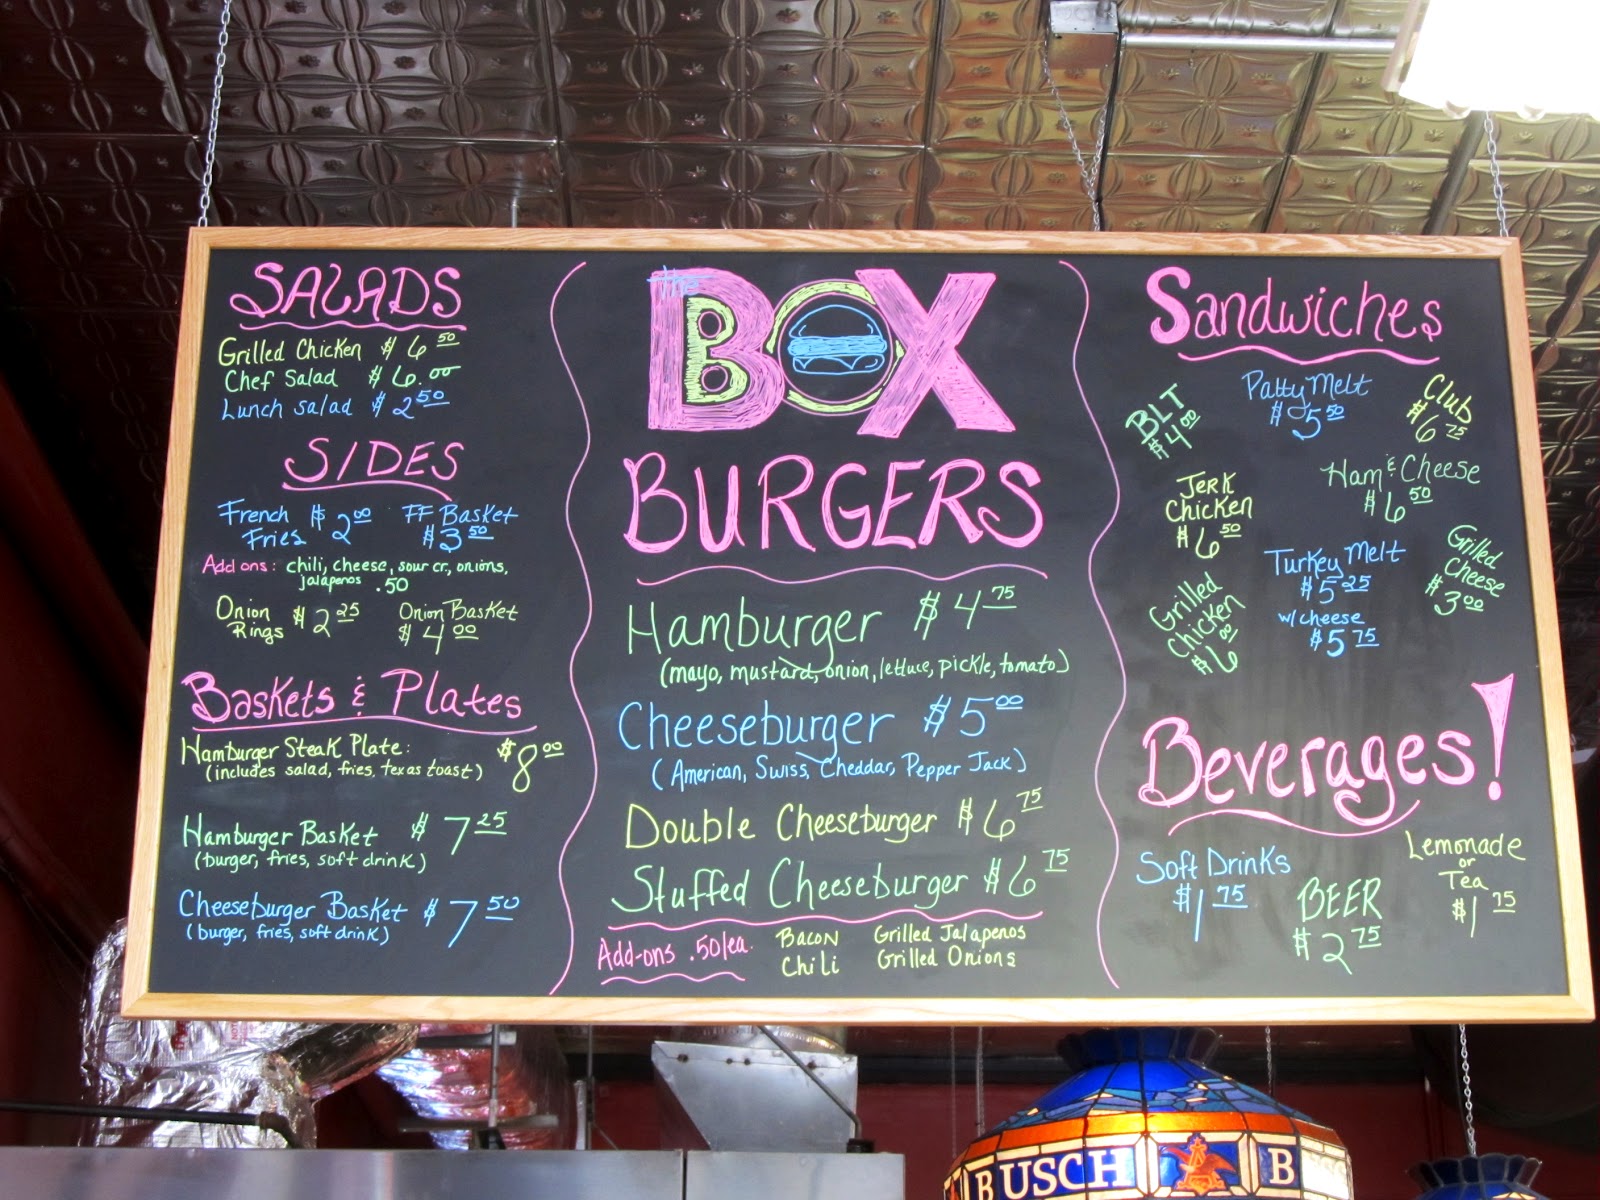 SALADS
Grilled Chicken $6.50
Chef Salad $6.00
Lunch salad $2.50
SIDES
French Fries $2.00
FF Basket $3.50
Add ons: chili, cheese, sour cr, onions,
jalapenos .50
Onion Rings $2.25
Onion Basket $4.00
Baskets & Plates
Hamburger Steak Plate: $8.00
(includes salad, fries, texas toast)
Hamburger Basket $7.25
(burger, fries, soft drink)
Cheeseburger Basket $7.50
(burger, fries, soft drink)
the
BOX
BB
BURGERS
Hamburger $4.75
(mayo, mustard, onion, lettuce, pickle, tomato)
Cheeseburger $5.00
(American, Swiss, Cheddar, Pepper Jack)
Double Cheeseburger $6.75
Stuffed Cheeseburger $6.75
Add-ons .50/ea.
Bacon
Chili
Grilled Jalapenos
Grilled Onions
Sandwiches
BLT
$4.00
Patty Melt
$5.50
Club
$6.75
Jerk
Chicken
$6.50
Ham & Cheese
$6.50
Grilled
Chicken
$6.00
Turkey Melt
$5.25
w/cheese
$5.75
Grilled
Cheese
$3.00
Beverages!
Soft Drinks
$1.75
BEER
$2.75
Lemonade
or
Tea
$1.75
BUSCH
B
B